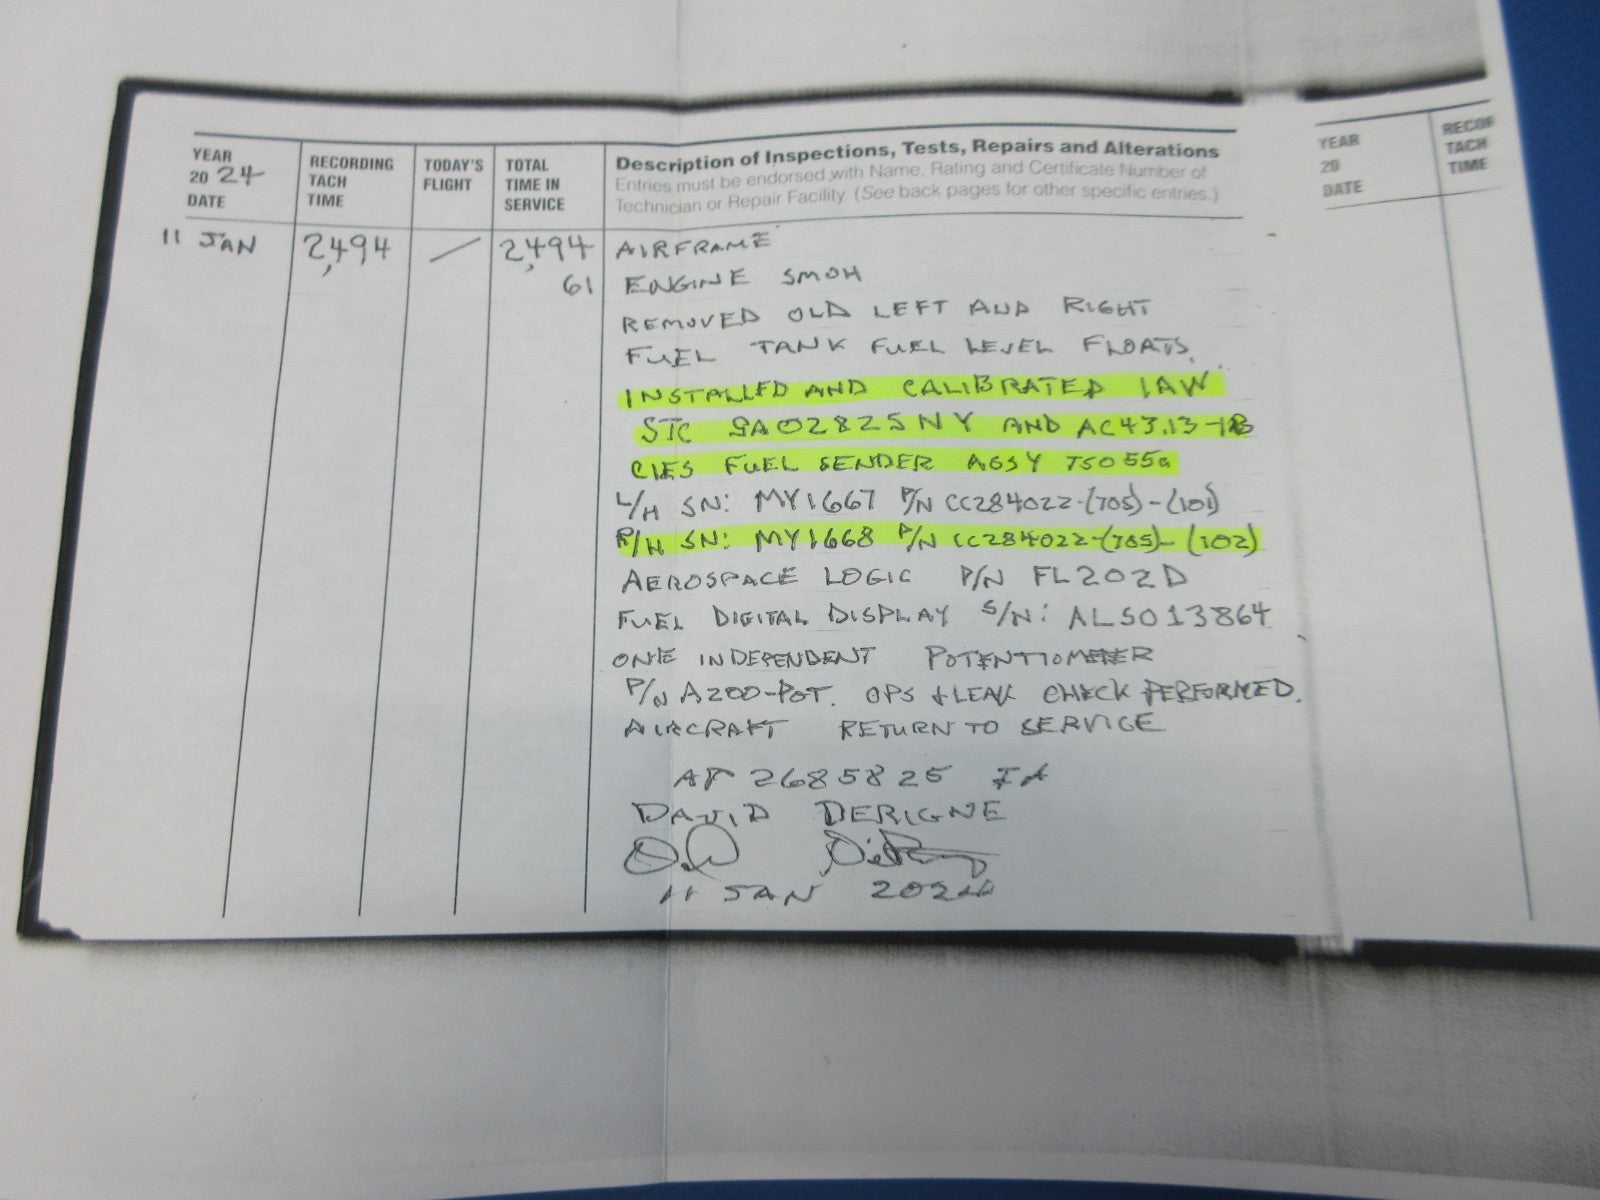 YEAR
20 24
DATE
RECORDING
TACH
TIME
TODAY'S
FLIGHT
TOTAL
TIME IN
SERVICE
Description of Inspections, Tests, Repairs and Alterations
Entries must be endorsed with Name, Rating and Certificate Number of
Technician or Repair Facility. (See back pages for other specific entries.)
YEAR
20
DATE
RECOR
TACH
TIME
11 JAN 2,494 / 2,494 AIRFRAME
61 ENGINE SMOH
REMOVED OLD LEFT AND RIGHT
FUEL TANK FUEL LEVEL FLOATS.
INSTALLED AND CALIBRATED IAW
STC SA02825NY AND AC43.13-1B
CIES FUEL SENDER ASSY TSO55a
L/H SN: MY1667 P/N CC284022-(705)-(101)
R/H SN: MY1668 P/N CC284022-(705)-(102)
AEROSPACE LOGIC P/N FL202D
FUEL DIGITAL DISPLAY S/N: ALS013864
ONE INDEPENDENT POTENTIOMETER
P/N A200-POT. OPS & LEAK CHECK PERFORMED.
AIRCRAFT RETURN TO SERVICE
AP 2685825 IA
DAVID DERIGNE
11 JAN 2024